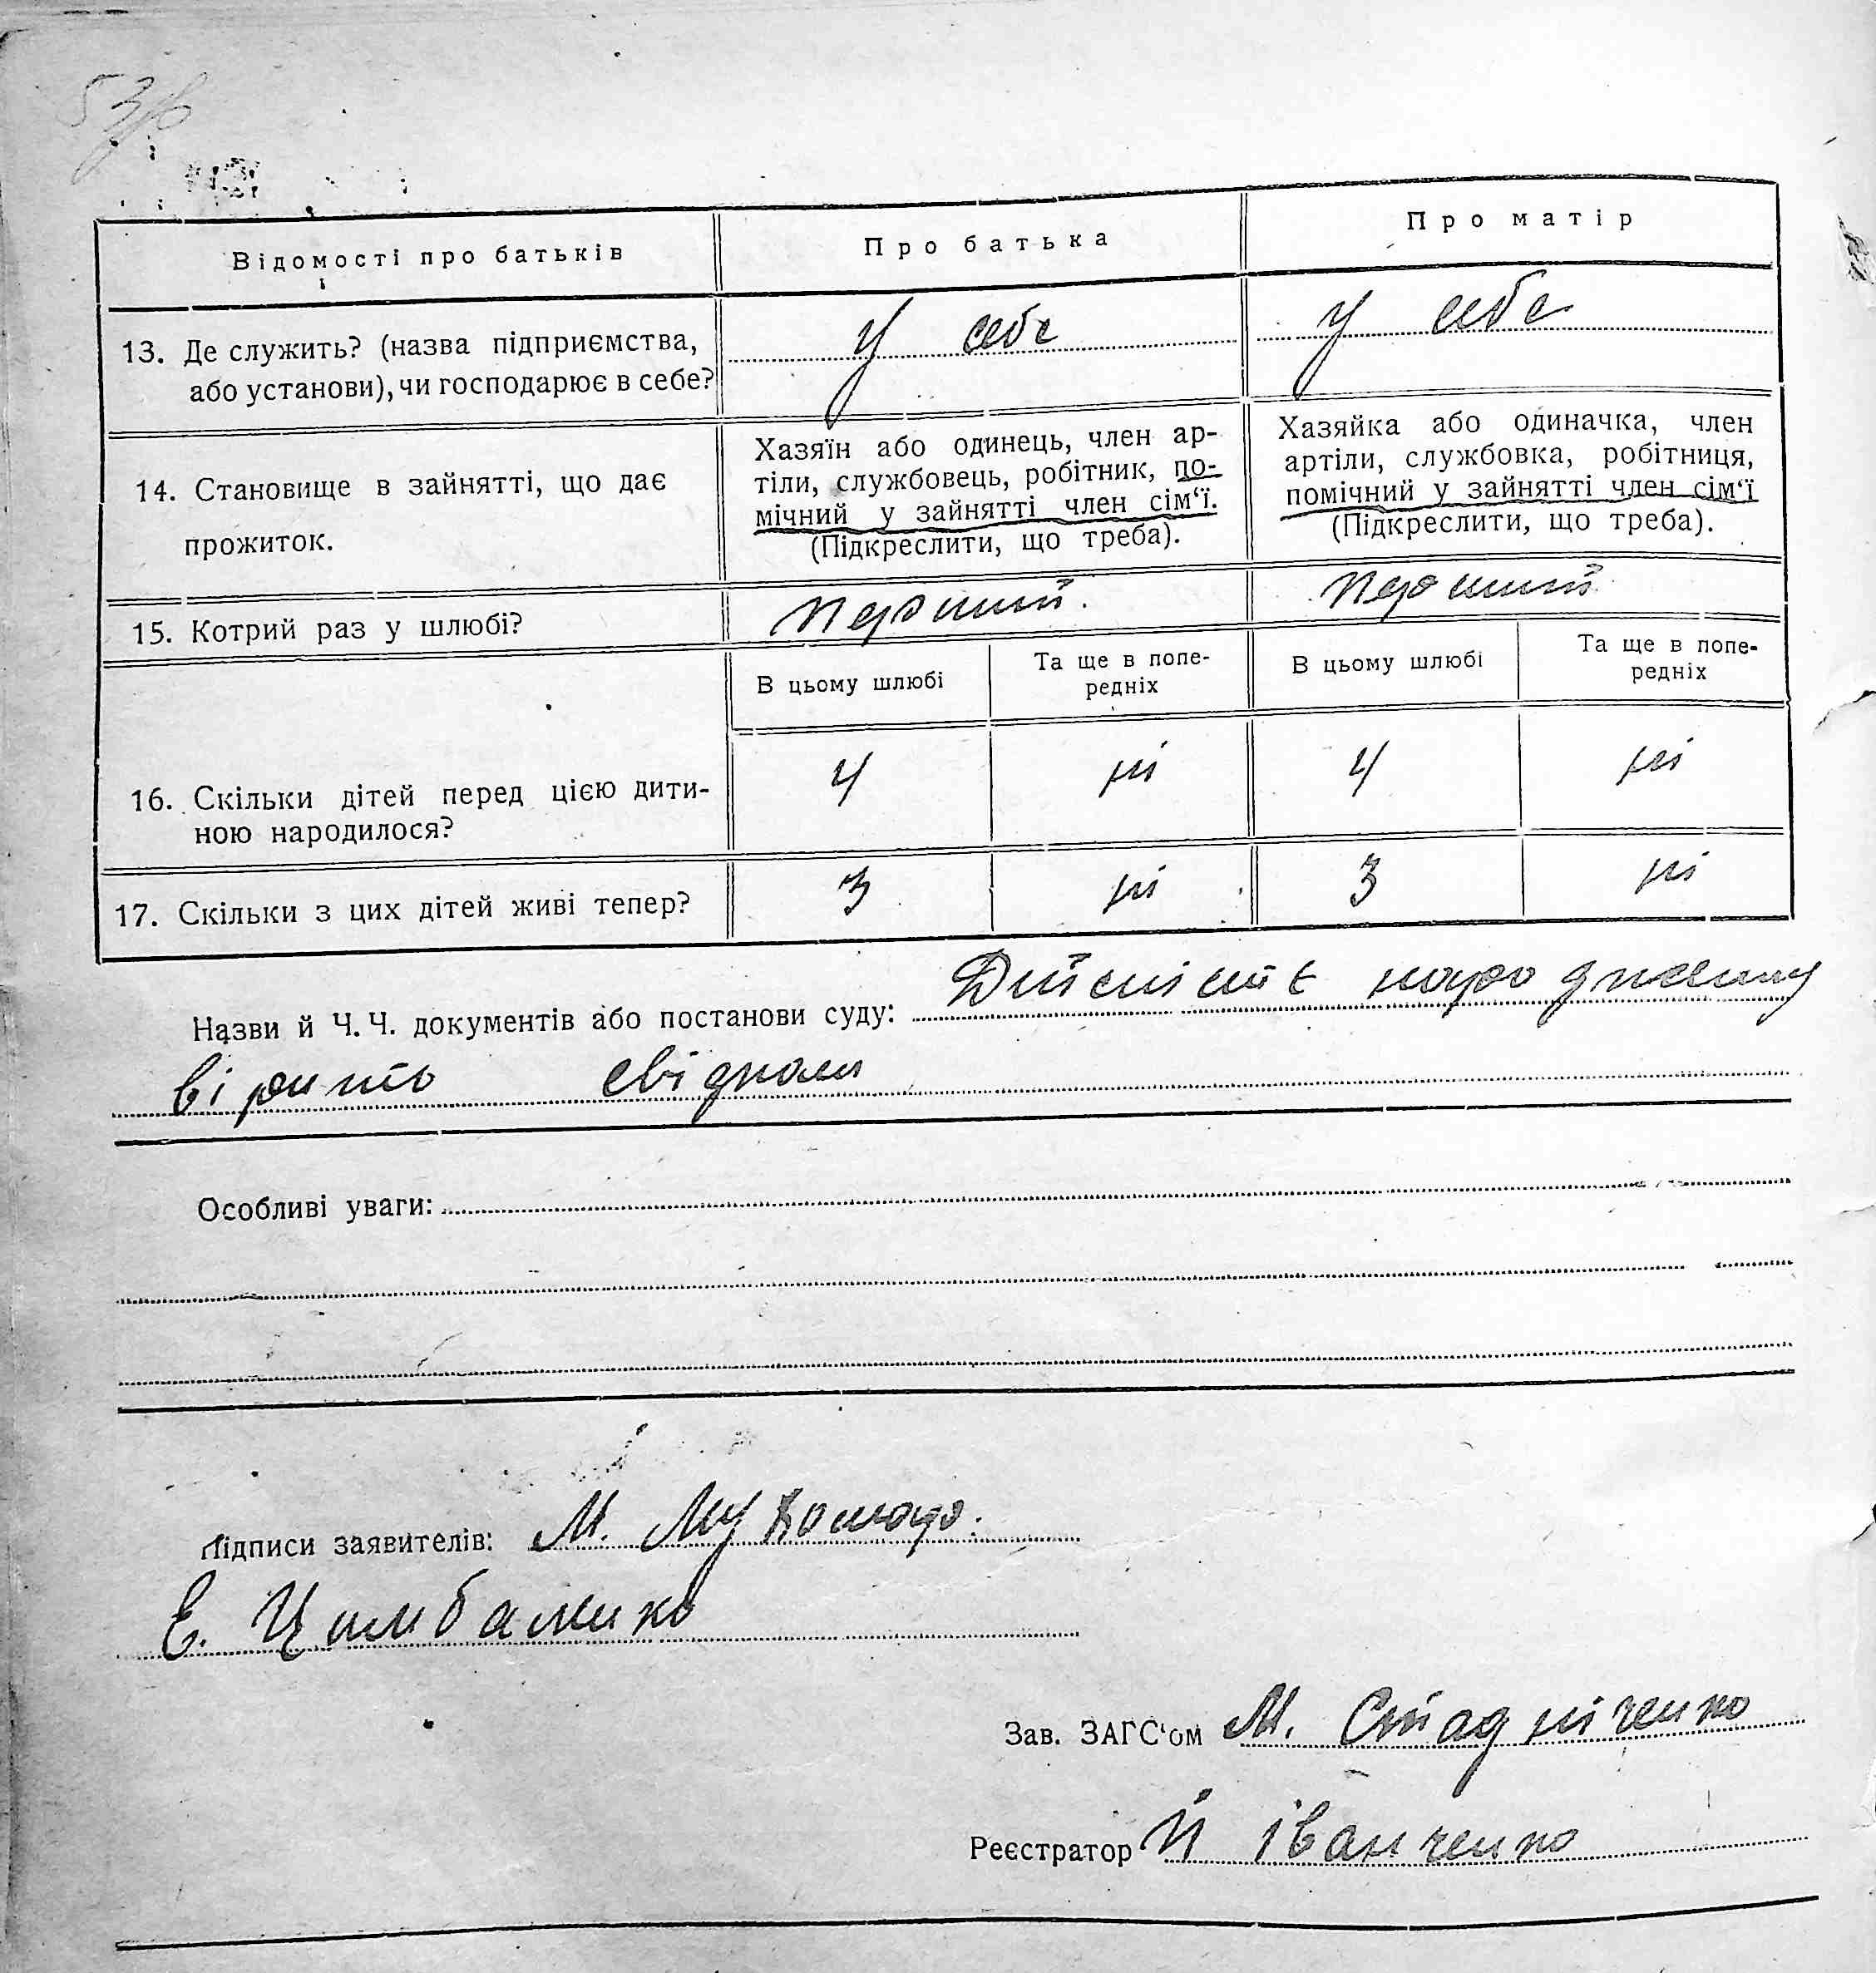 Відомості про батьків
Про батька
Про матір
13. Де служить? (назва підприємства, або установи), чи господарює в себе?
у себе
у себе
14. Становище в зайнятті, що дає прожиток.
Хазяїн або одинець, член ар-
тіли, службовець, робітник, по-
мічний у зайнятті член сім‘ї.
(Підкреслити, що треба).
Хазяйка або одиначка, член
артіли, службовка, робітниця,
помічний у зайнятті член сім‘ї
(Підкреслити, що треба).
15. Котрий раз у шлюбі?
перший.
перший
В цьому шлюбі
Та ще в попе-
редніх
В цьому шлюбі
Та ще в попе-
редніх
16. Скільки дітей перед цією дити-
ною народилося?
4
ні
4
ні
17. Скільки з цих дітей живі тепер?
3
ні
3
ні
Назви й Ч. Ч. документів або постанови суду:
свідками
Особливі уваги:
Підписи заявителів: М.
Е. Цимбаленко
Зав. ЗАГС‘ом М. Стадніченко
Реєстратор Й Іванченко